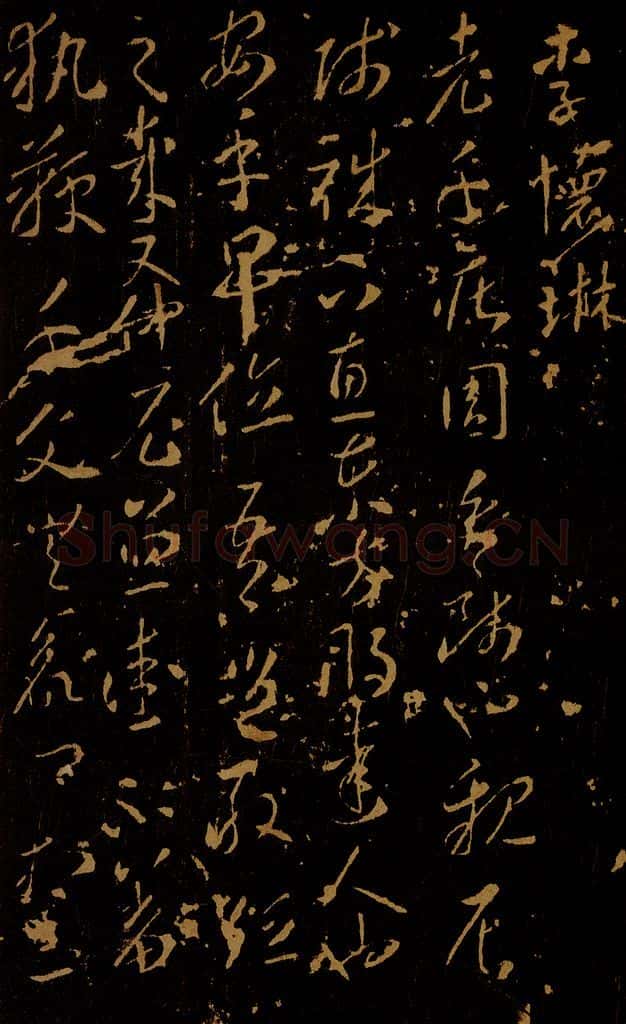 李懷琳
老子莊周吾師也親居
賤職下惠東方朔達人也
安乎卑位吾豈敢短
之哉又仲尼兼愛不羞
執鞭子文無欲卿相
Shufawang.CN